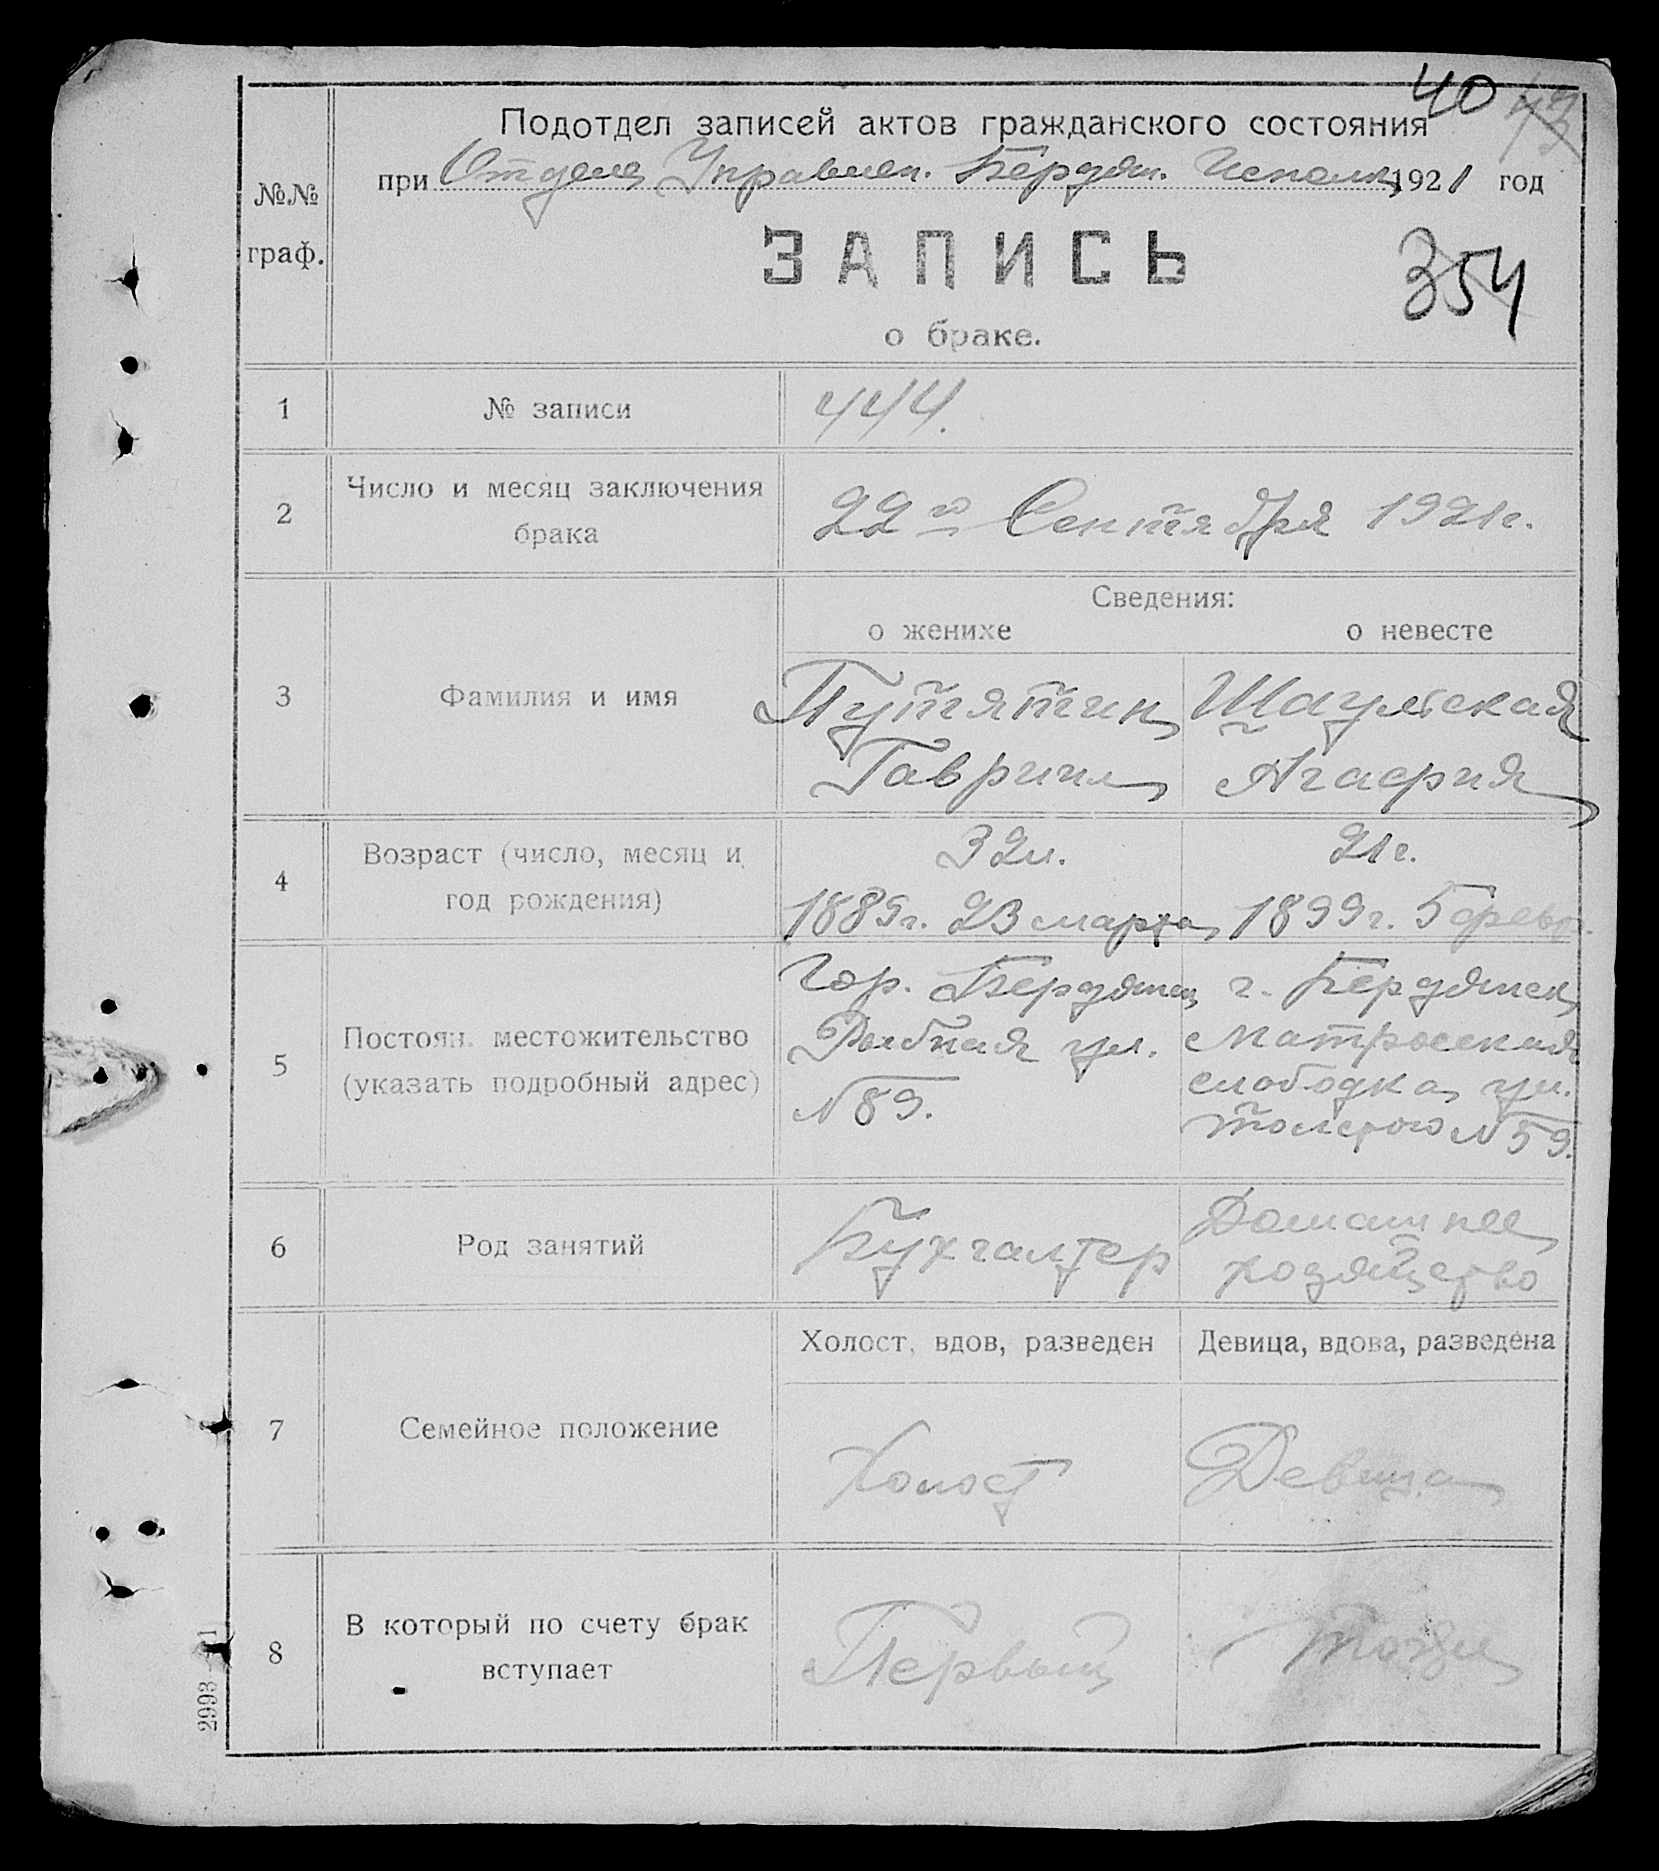 40 43
Подотдел записей актов гражданского состояния
при Отделе Управлен. Бердян. Исполк. 1921 год
№№
граф.
ЗАПИСЬ
354
о браке.
1 № записи 444.
2 Число и месяц заключения
брака
22го Сентября 1921г.
Сведения:
о женихе о невесте
3 Фамилия и имя
Путятин Шаульская
Гавриил Агафия
4 Возраст (число, месяц и
год рождения)
32л. 21г.
1889г. 23 марта 1899г. 5 февр.
5 Постоян. местожительство
(указать подробный адрес)
Гор. Бердянск г. Бердянск
Рыбная ул. Матросская
№ 89. слободка ул.
Толстого № 59.
6 Род занятий
Бухгалтер Домашнее
хозяйство
Холост, вдов, разведен Девица, вдова, разведена
7 Семейное положение
Холост Девица
8 В который по счету брак
вступает
Первый Тоже